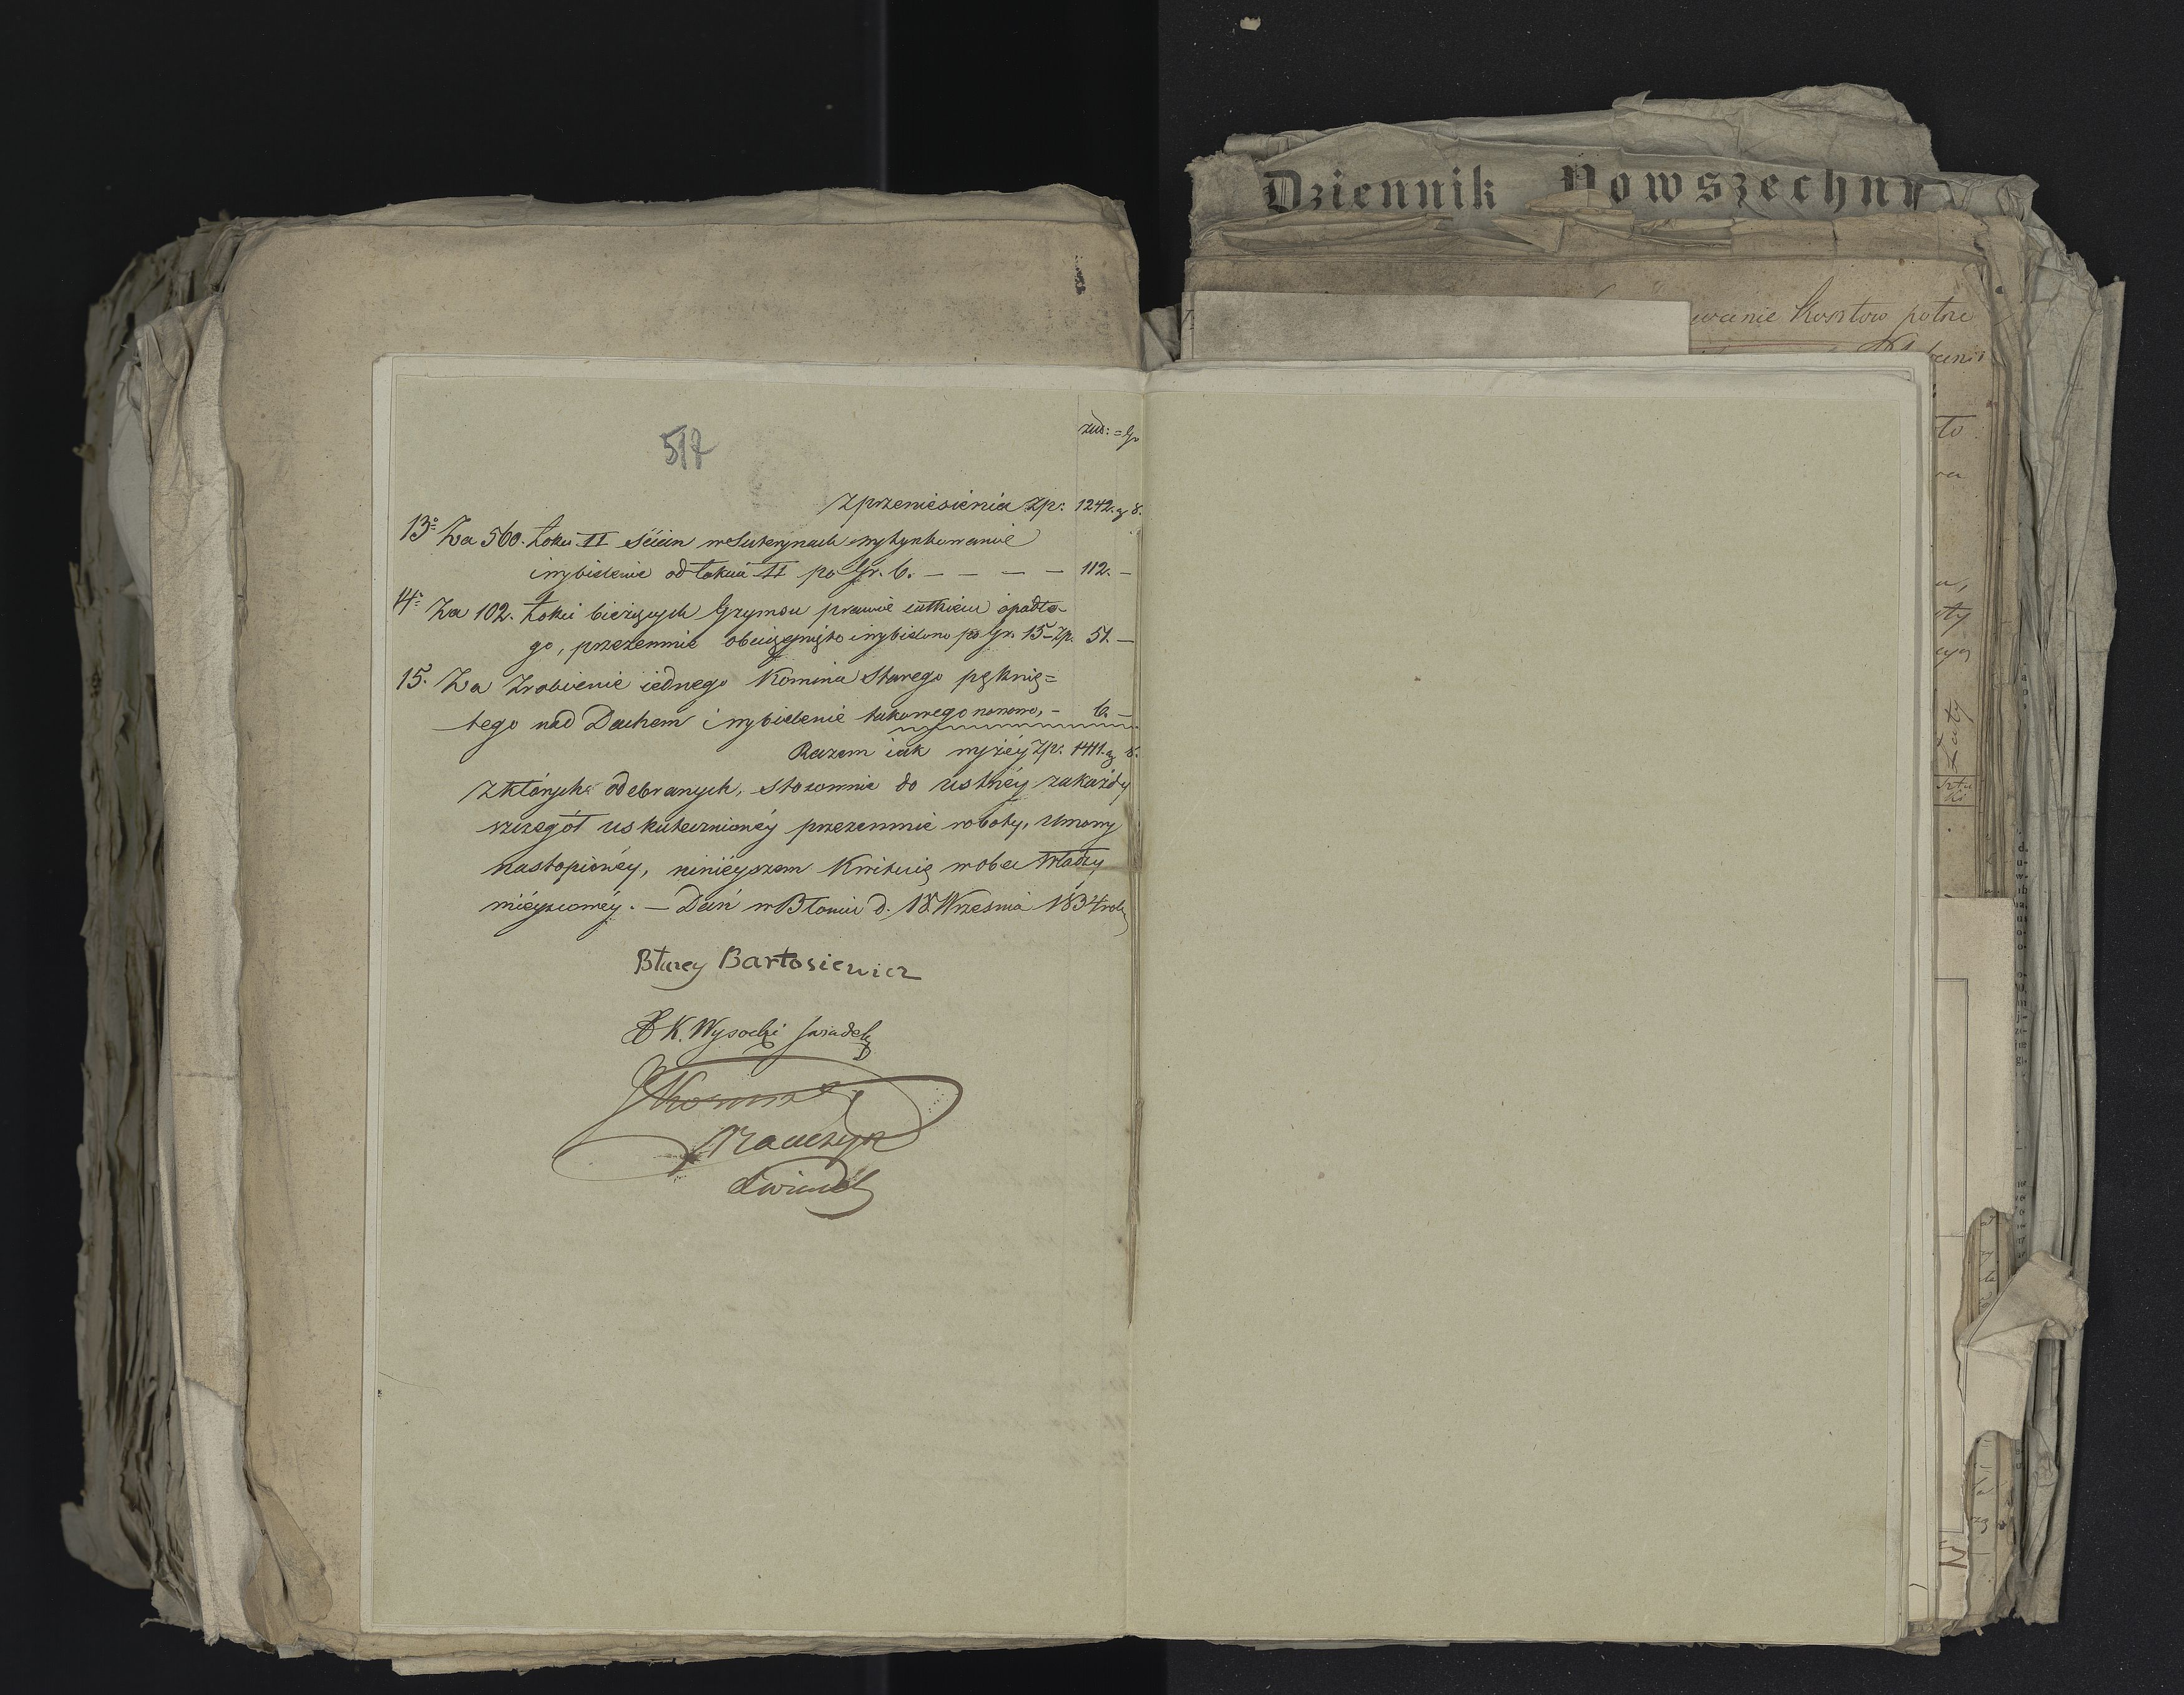 517
złtt: = Gr
Z przeniesienia Zp: 1242. g 8.
13º Za 560. Łokci II Ściān w Suterynach wytynkowanie
i wybielenie od Łokcia II po Gr. 6. — — — — 112. —
14º Za 102. Łokci bieżących Gzymsu prawie całkiem opadłe-
go, przezemnie obciągnięto i wybielono po Gr. 15 — Zp. 51. —
15. Za Zrobienie iednego Komina Starego pęknię=
tego nad Dachem i wybielenie takowego nanowo, — 6. —
Razem iak wyżéy Zp: 1411. g 8.
z których odebranych, stosownie do ustnéy za każdy
szczegół uskutecznionéy przezemnie roboty, Umowy
nastąpionéy, niniéyszem Kwituię wobec Władzy
miéyscowéy. — Dań w Błoniu d. 18 Września 1834 roku
Błazey Bartosiewicz
K. Wysocki Swiadek
Krawczyk
Swiadek
Dziennik Powszechny
wanie Kosztow potrze